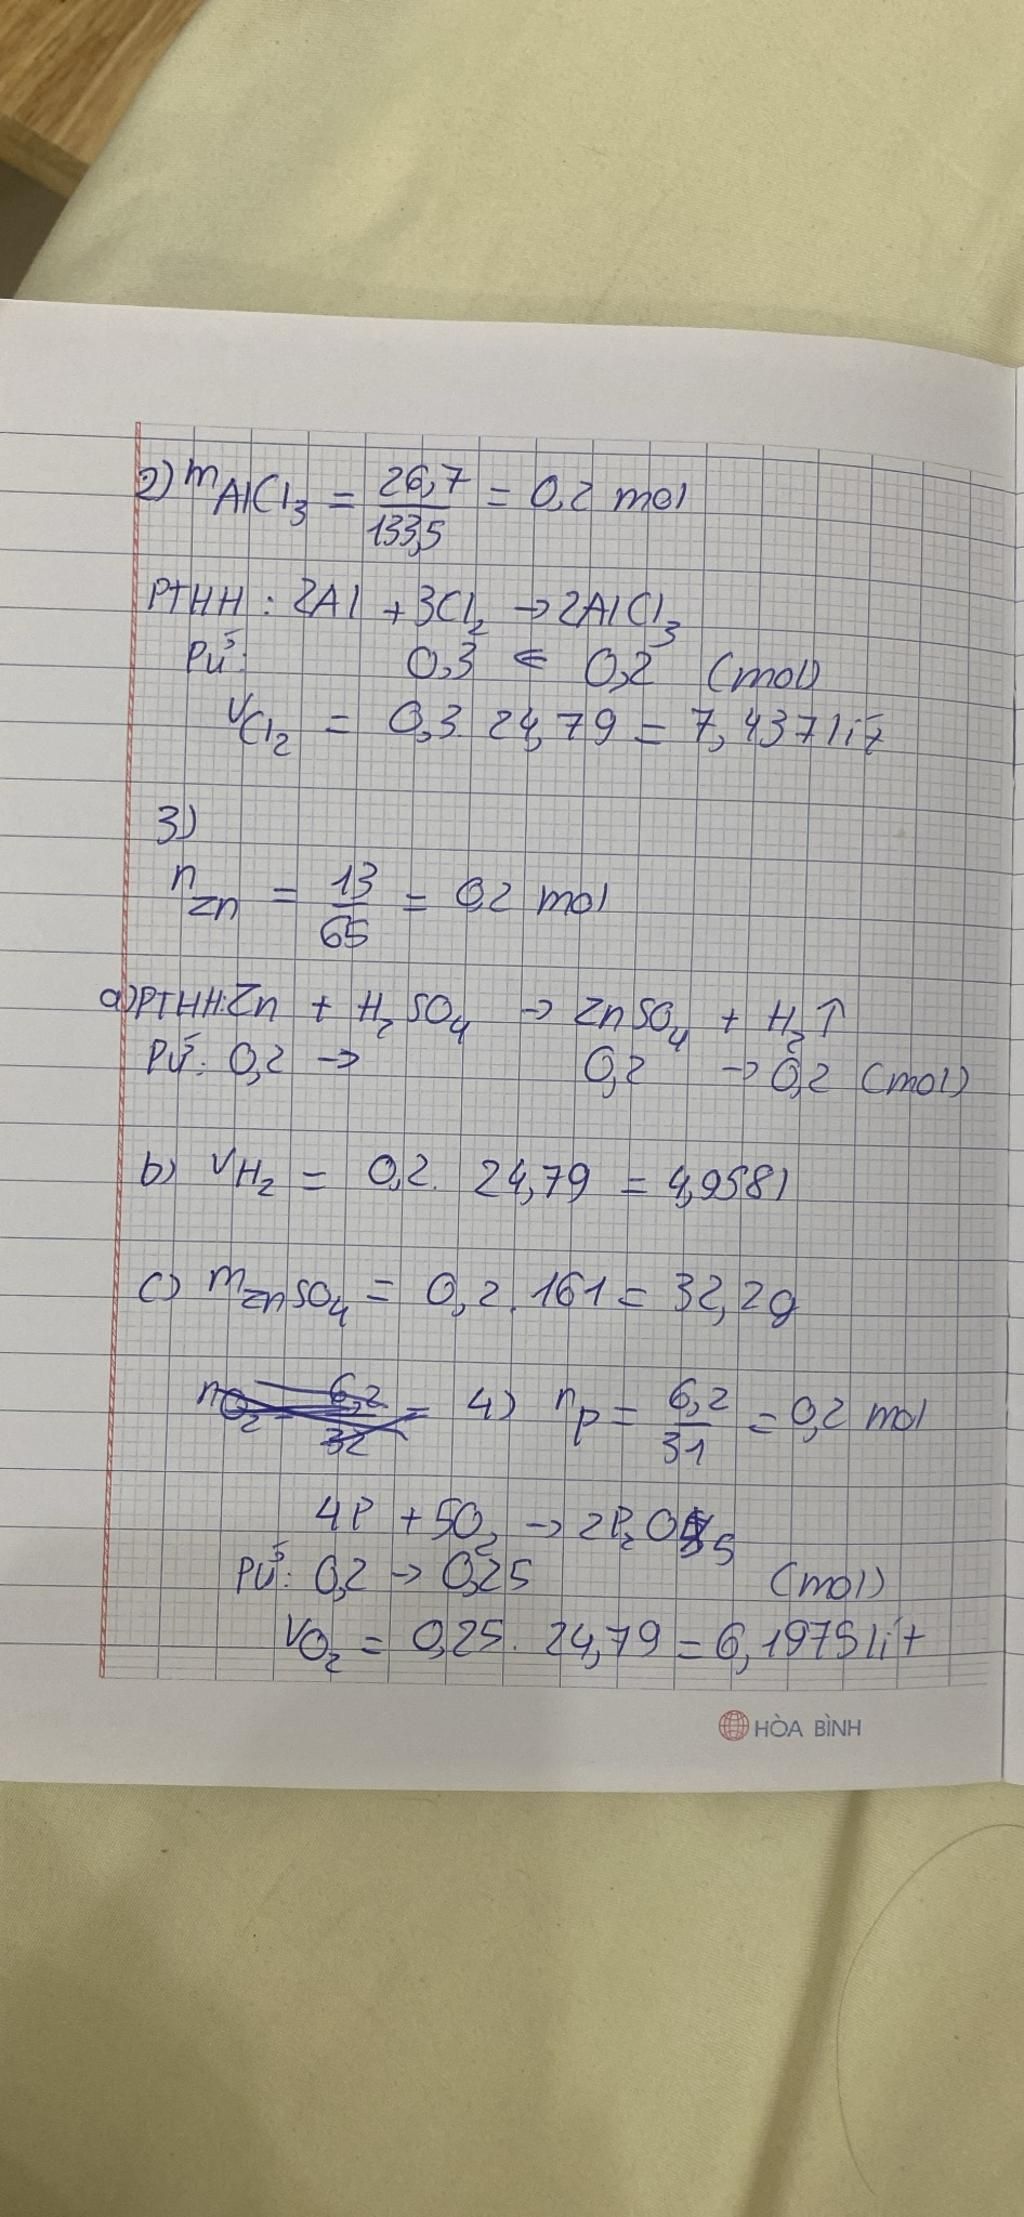 2) mAlCl3 = 26,7/133,5 = 0,2 mol
PTHH: 2Al + 3Cl2 → 2AlCl3
PƯ: 0,3 ← 0,2 (mol)
VCl2 = 0,3 24,79 = 7,437 lít
3)
nZn = 13/65 = 0,2 mol
a) PTHH: Zn + H2SO4 → ZnSO4 + H2↑
PƯ: 0,2 → 0,2 → 0,2 (mol)
b) VH2 = 0,2. 24,79 = 4,958 l
c) mZnSO4 = 0,2. 161 = 32,2g
nO2 = 6,2/32 = 4) nP = 6,2/31 = 0,2 mol
4P + 5O2 → 2P2O5
PƯ: 0,2 → 0,25 (mol)
VO2 = 0,25. 24,79 = 6,1975 lít
HÒA BÌNH